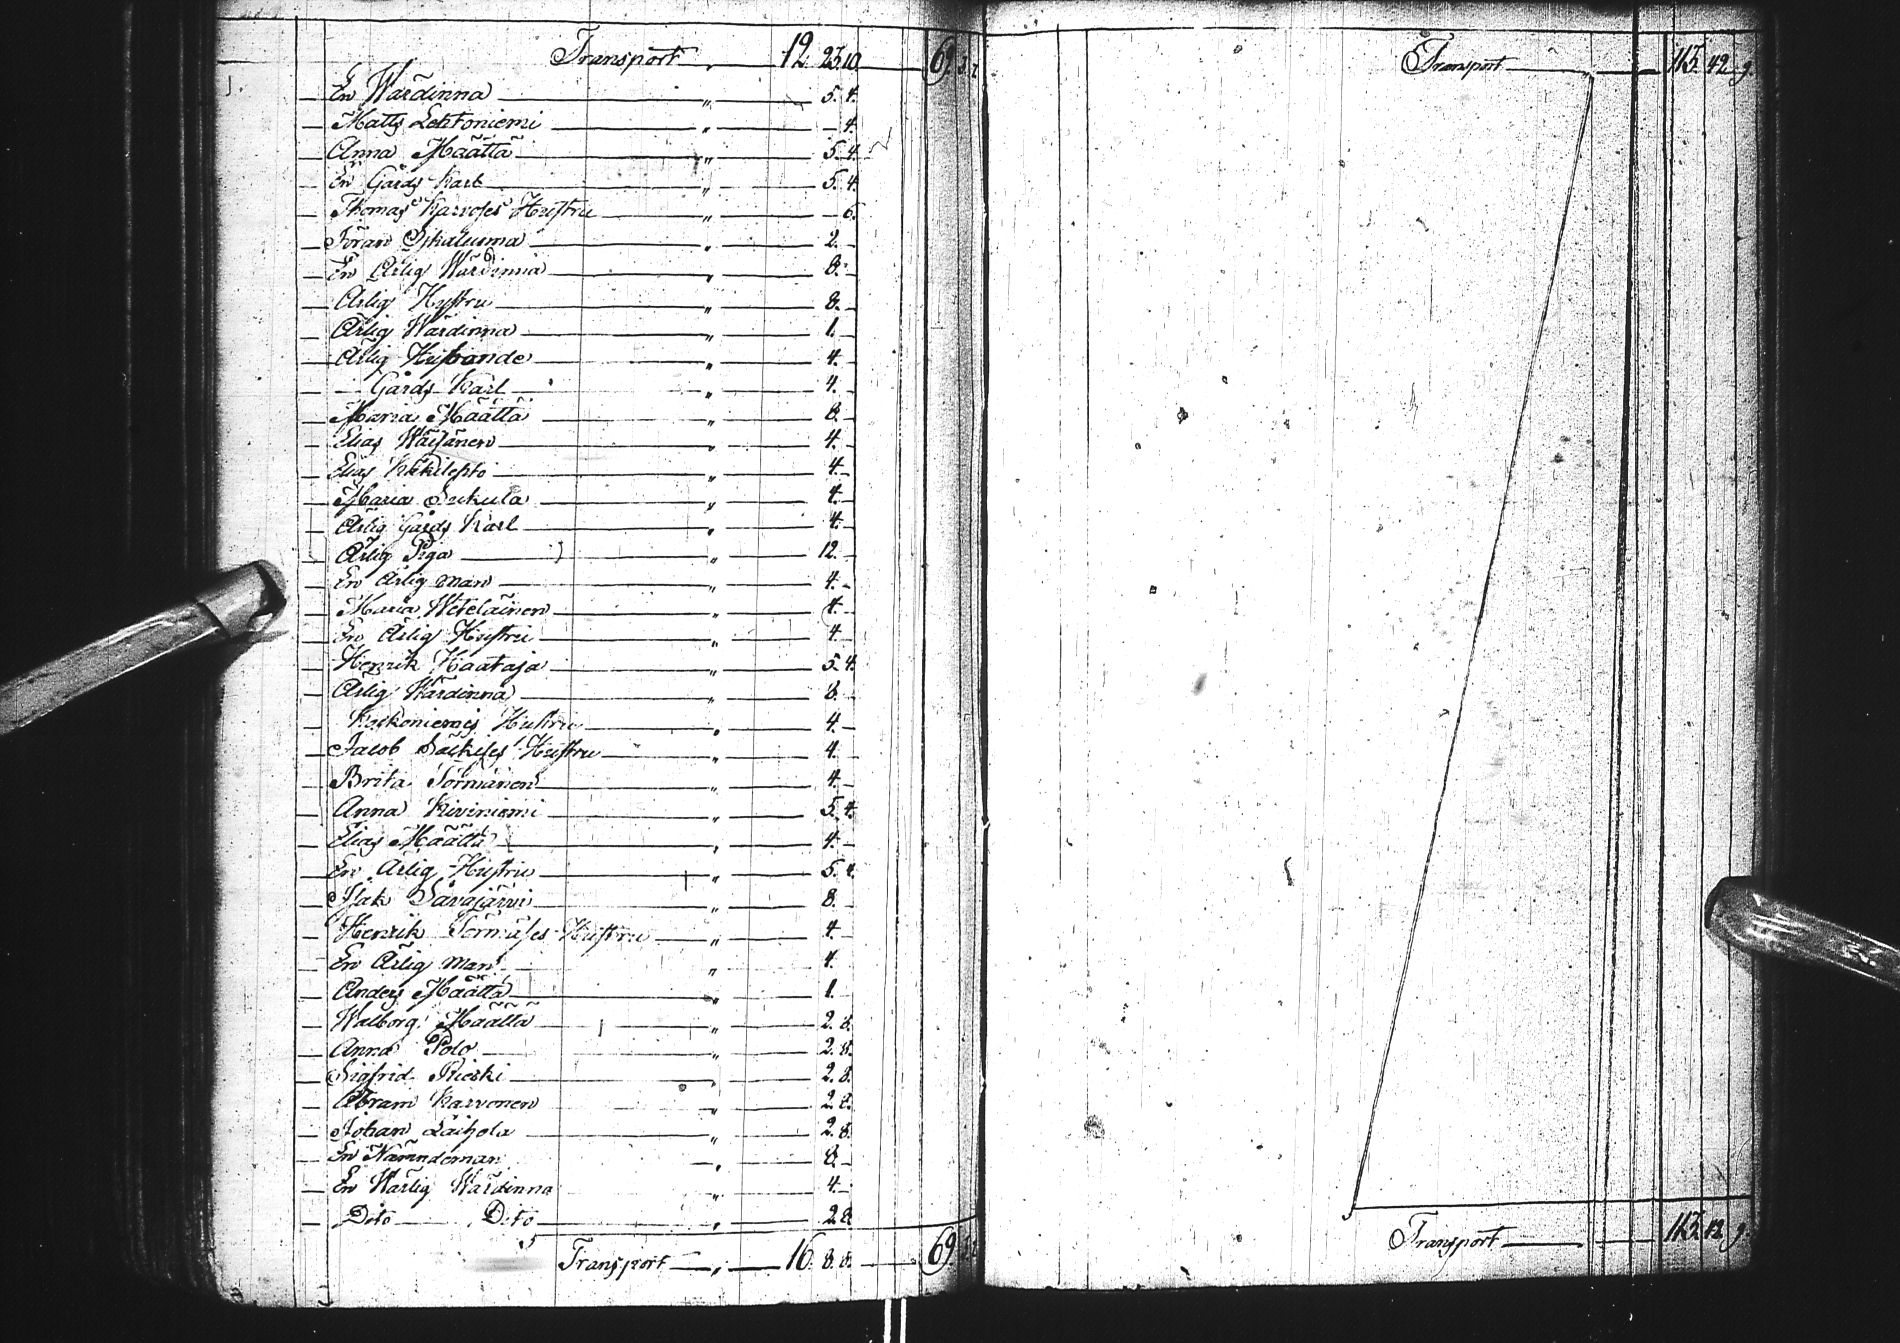 Transport „ 12. 23. 10. 69.
En Wärdinna „ 5. 4.
Matts Lehtoniemi „ 4.
Anna Määttä „ 5. 4.
En Gårds Karl „ 5. 4.
Thomas Karvoses Hustru „ 6.
Jöran „ 2.
En Ärlig Wärdinna „ 8.
Ärlig Hustru „ 8.
Ärlig Wärdinna „ 1.
Ärlig „ 4.
Gårds Karl „ 4.
Maria Määttä „ 8.
Elias Wäisänen „ 4.
Elias „ 4.
Maria „ 4.
Ärlig Gårds Karl „ 4.
Ärlig Piga „ 12.
En Ärlig man „ 4.
Maria Weteläinen „ 4.
En Ärlig Hustru „ 4.
Henrik Haataja „ 5. 4.
Ärlig Wärdinna „ 8.
Koskoniemis Hustru „ 4.
Jacob Säckises Hustru „ 4.
Brita Törmänen „ 4.
Anna Kiviniemi „ 5. 4.
Elias Määttä „ 4.
En Ärlig Hustru „ 5. 4.
Isak Säväjärvi „ 8.
Henrik Törmäses Hustru „ 4.
En Ärlig man „ 4.
Anders Määttä „ 1.
Walborg Määttä „ 2. 8.
Anna Polo „ 2. 8.
Sigfrid Rieski „ 2. 8.
Abram Karvonen „ 2. 8.
Johan „ 2. 8.
En Nämndeman „ 8.
En Wärlig Wärdinna „ 4.
Dito Dito „ 2. 8.
Transport „ 16. 8. 8. 69.
Transport 113. 42. 9.
Transport 113. 42. 9.